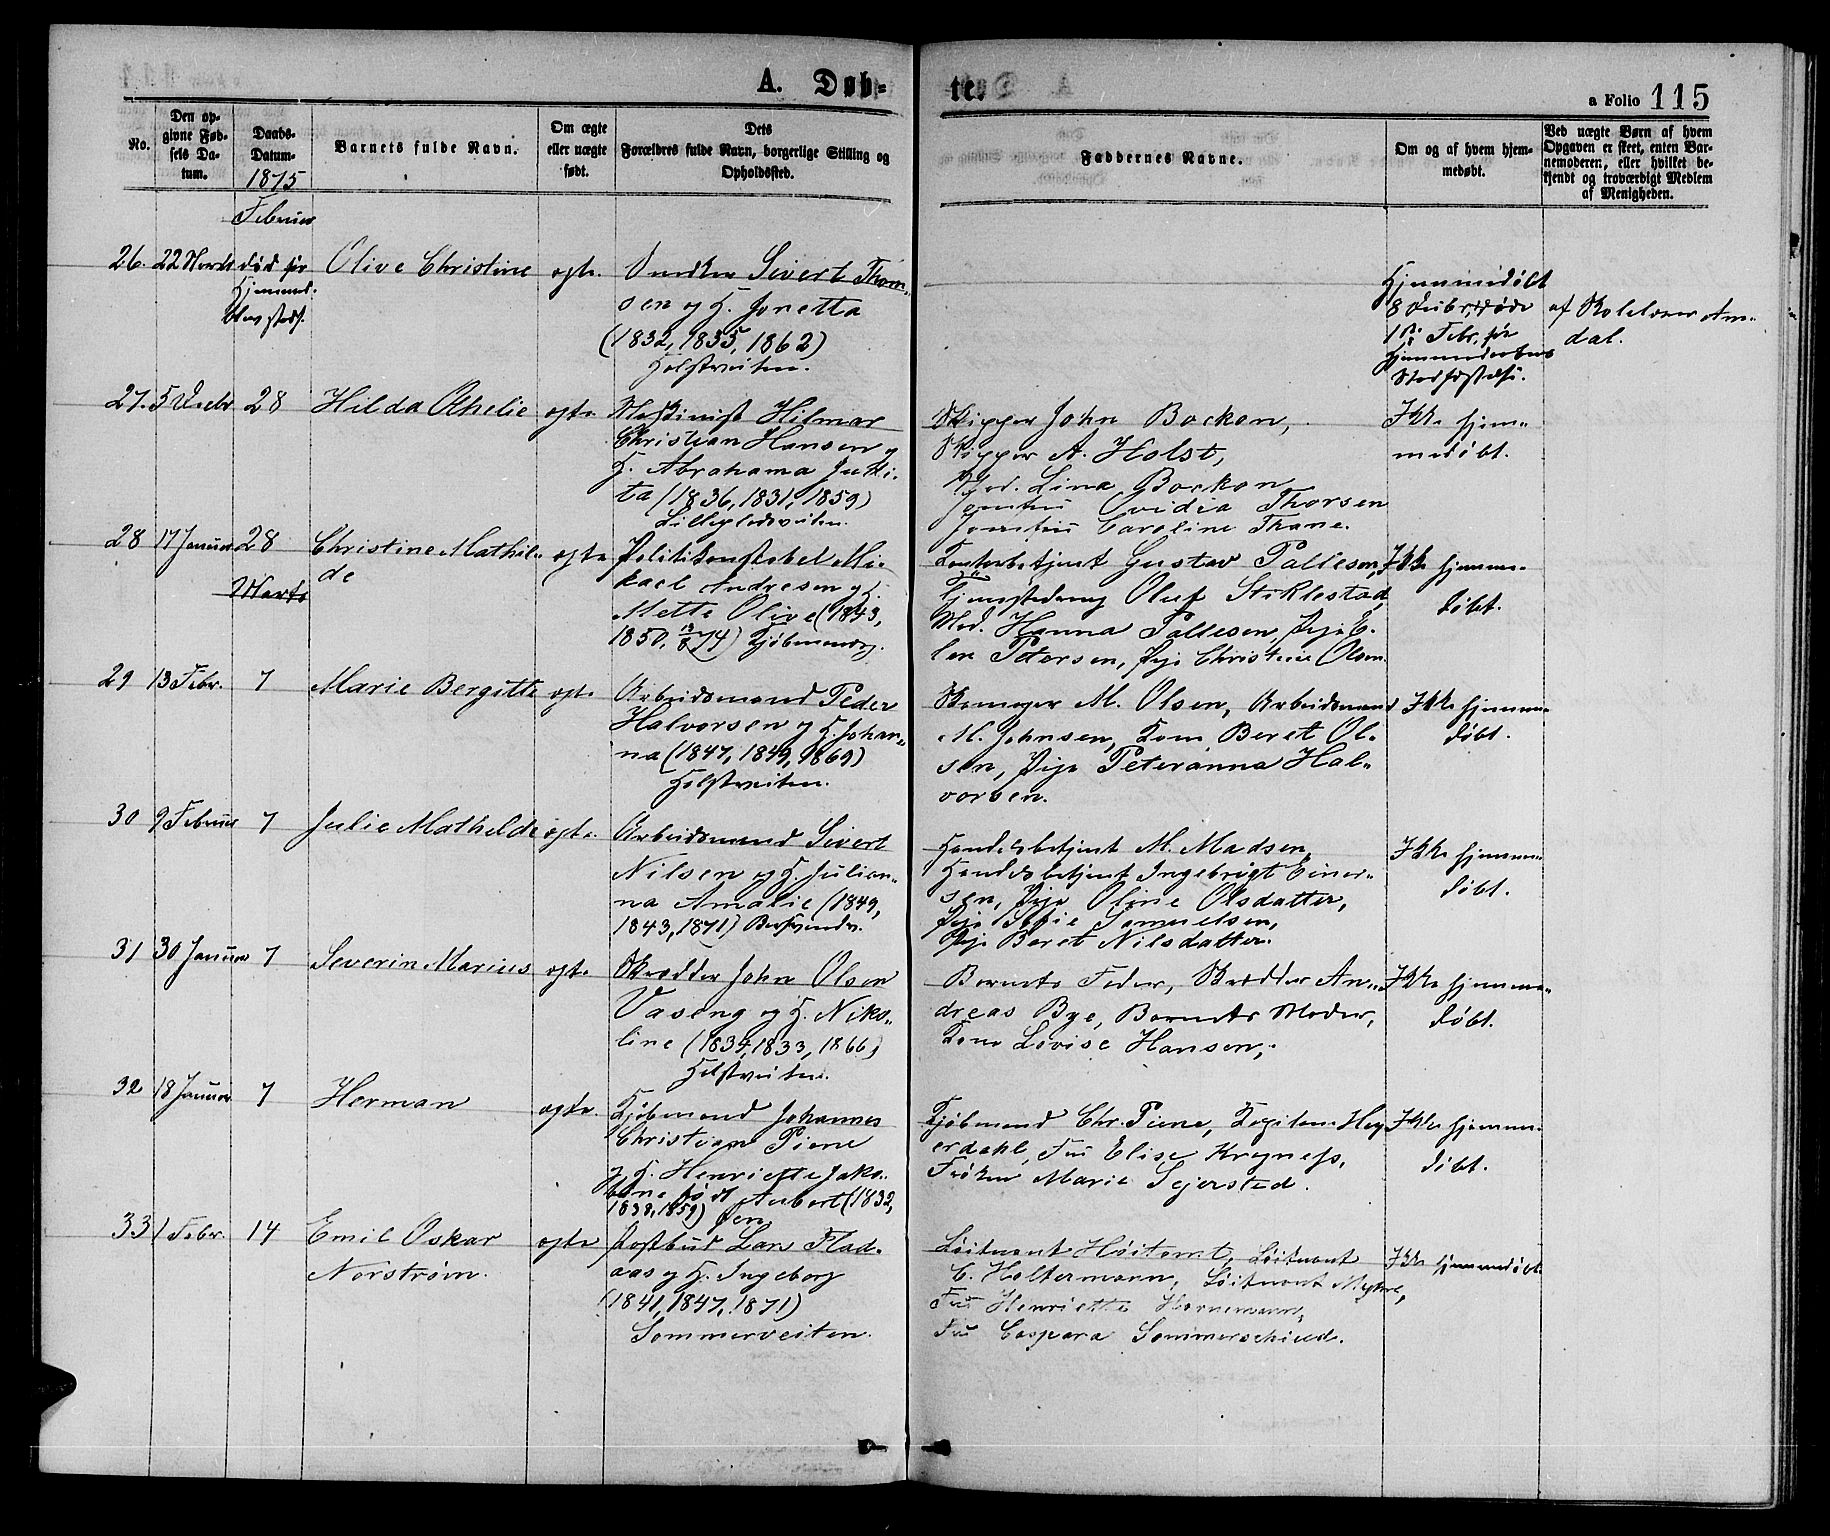 A. Døb-
te.
a Folio 115
No.
Den op-
givne Fød-
sels Da-
tum.
Daabs-
Datum.
1875
Barnets fulde Navn.
Om ægte
eller uægte
født.
Dets
Forældres fulde Navn, borgerlige Stilling og
Opholdssted.
Faddernes Navne.
Om og af hvem hjem-
medøbt.
Ved uægte Børn af hvem
Opgaven er skeet, enten Bar-
nemoderen, eller hvilket be-
kjendt og troværdigt Medlem
af Menigheden.
Februar
26. 22 død før
Olive Christine
ægte.
Snedker Sivert Thom-
sen og H. Jonetta
(1832, 1835, 1862)
Holstveiten.
Hjemmedøbt
8 døde
Febr. før
af Skolelærer Am-
dal.
27. 5 Decbr 28
Hilda Othelie
ægte
Maskinist Hilmar
Christian Hansen og
H. Abrahama Juki-
ta (1836, 1831, 1859)
Skipper John Bockon,
Skipper A. Holst,
Mad. Lina Bockon
Jomfru Ovidia Thorsen
Jomfru Caroline Thane.
Ikke hjem-
medøbt.
28 17 Januar 28
Christine Mathil-
de
ægte
Politikonstabel Mi-
kael Andresen og H.
Mette Olive (1843,
1850, 74) Kjøbmandsg.
Kontorbetjent Gustav Pallesen,
Oluf Stiklestad,
Mad. Hanna Pallesen, Pige E-
len Petersen, Pige Christine Olsen
Ikke hjemme-
døbt.
Marts
29 13 Febr. 7
Marie Bergitte
ægte
Arbeidsmand Peder
Halvorsen og H. Johan-
na (1847, 1849, 1869)
Holstveiten.
Skomager M. Olsen, Arbeidsmand
M. Johnsen, Kone Beret Ol-
sen, Pige Peteranna Hal-
vorsen.
Ikke hjemme-
døbt.
30 9 Februar 7
Julie Mathilde
ægte.
Arbeidsmand Sivert
Nilsen og H. Julian-
na Amalie (1849,
1843, 1871) Bersvendv.
Handelsbetjent M. Madsen,
Handelsbetjent Ingebrigt Einar-
sen, Pige Oline Olsdatter,
Pige Sofie Samuelsen,
Pige Beret Nilsdatter.
Ikke hjemme-
døbt.
31 30 Januar 7
Severin Marius
ægte
Skrædder John Olsen
Vaseng og H. Niko-
line (1834, 1833, 1866)
Holstveiten.
Barnets Fader, Skrædder An-
dreas Bye, Barnets Moder,
Kone Lovise Hansen,
Ikke hjemme-
døbt.
32 18 Januar 7
Herman
ægte.
Kjøbmand Johannes
Christian Piene
og H. Henriette Jako-
bine født Aubert (1832,
1838, 1859)
Kjøbmand Chr. Piene, Kapitain Hey-
erdahl, Fru Elise Krogness,
Frøken Marie Sejersted.
Ikke hjemme-
døbt.
33 1 Febr. 14
Emil Oskar
Norstrøm.
ægte
Postbud Lars Flad-
aas og H. Ingeborg
(1841, 1847, 1871)
Sommerveiten.
Løitnant Høitomt, Løitnant
C. Holtermann, Løitnant Myhre,
Fru Henriette Hornemann,
Fru Caspara Sommerschield.
Ikke hjemmedøbt.